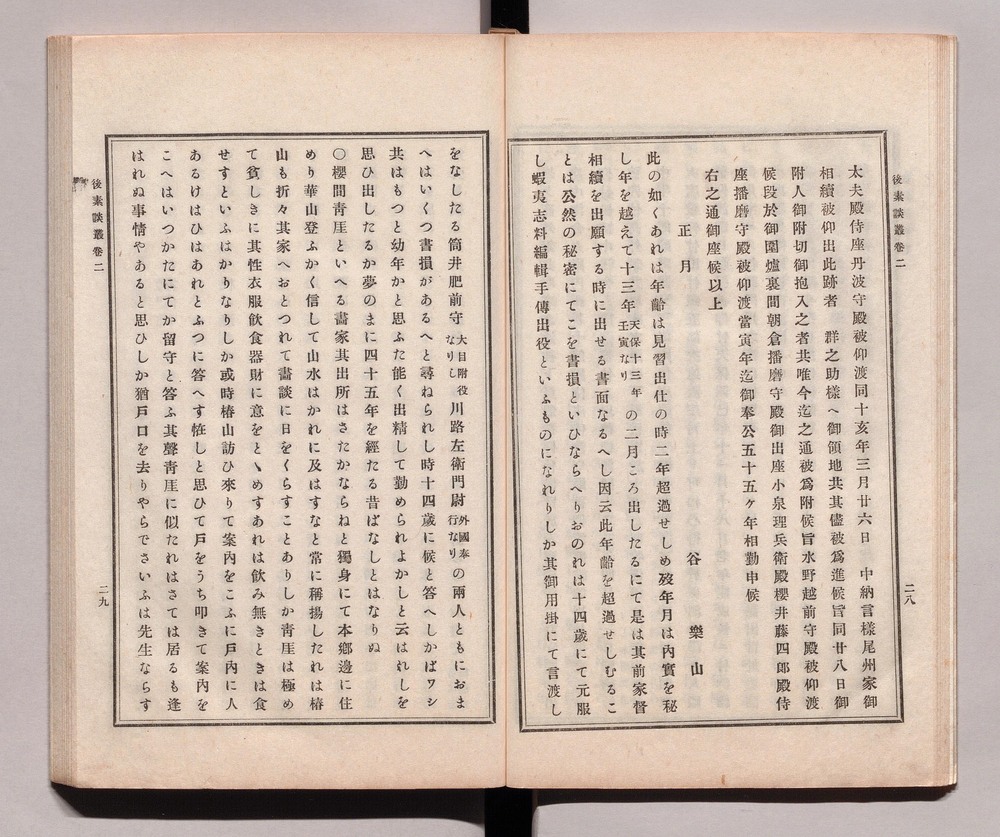 後素談叢卷二
二八
太夫殿侍座丹波守殿被仰渡同十亥年三月廿六日　中納言樣尾州家御
相續被仰出此跡者　群之助樣へ御領地共其儘被爲進候旨同廿八日御
附人御附切御抱入之者共唯今迄之通被爲附候旨水野越前守殿被仰渡
候段於御圍爐裏間朝倉播磨守殿御出座小泉理兵衛殿櫻井藤四郎殿侍
座播磨守殿被仰渡當寅年迄御奉公五十五ケ年相勤申候
右之通御座候以上
正月　谷樂山
此の如くあれは年齡は見習出仕の時二年超過せしめ歿年月は內實を秘
し年を越えて十三年天保十三年壬寅なりの二月ころ出したるにて是は其前家督
相續を出願する時に出せる書面なるへし因云此年齡を超過せしむるこ
とは公然の秘密にてこを書損といひならへりおのれは十四歲にて元服
し蝦夷志料編輯手傳出役といふものになれりしか其御用掛にて言渡し
をなしたる筒井肥前守大目附役なりし川路左衞門尉外國奉行なりの兩人ともにおま
へはいくつ書損があるへと尋ねられし時十四歲に候と答へしかばワシ
共はもつと幼年かと思ふた能く出精して勤められよかしと云はれしを
思ひ出したるか夢のまに四十五年を經たる昔ばなしとはなりぬ
〇櫻間靑厓といへる畵家其出所はさたかならねと獨身にて本鄕邊に住
めり華山登ふかく信して山水はかれに及はすなと常に稱揚したれは椿
山も折々其家へおとつれて畵談に日をくらすことありしか靑厓は極め
て貧しきに其性衣服飮食器財に意をとゝめすあれは飮み無きときは食
せすといふはかりなりしか或時椿山訪ひ來りて案內をこふに戶內に人
あるけはひはあれとふつに答へす恠しと思ひて戶をうち叩きて案內を
こへはいつかたにてか留守と答ふ其聲靑厓に似たれはさては居るも逢
はれぬ事情やあると思ひしか猶戶口を去りやらでさいふは先生ならす
後素談叢卷二
二九